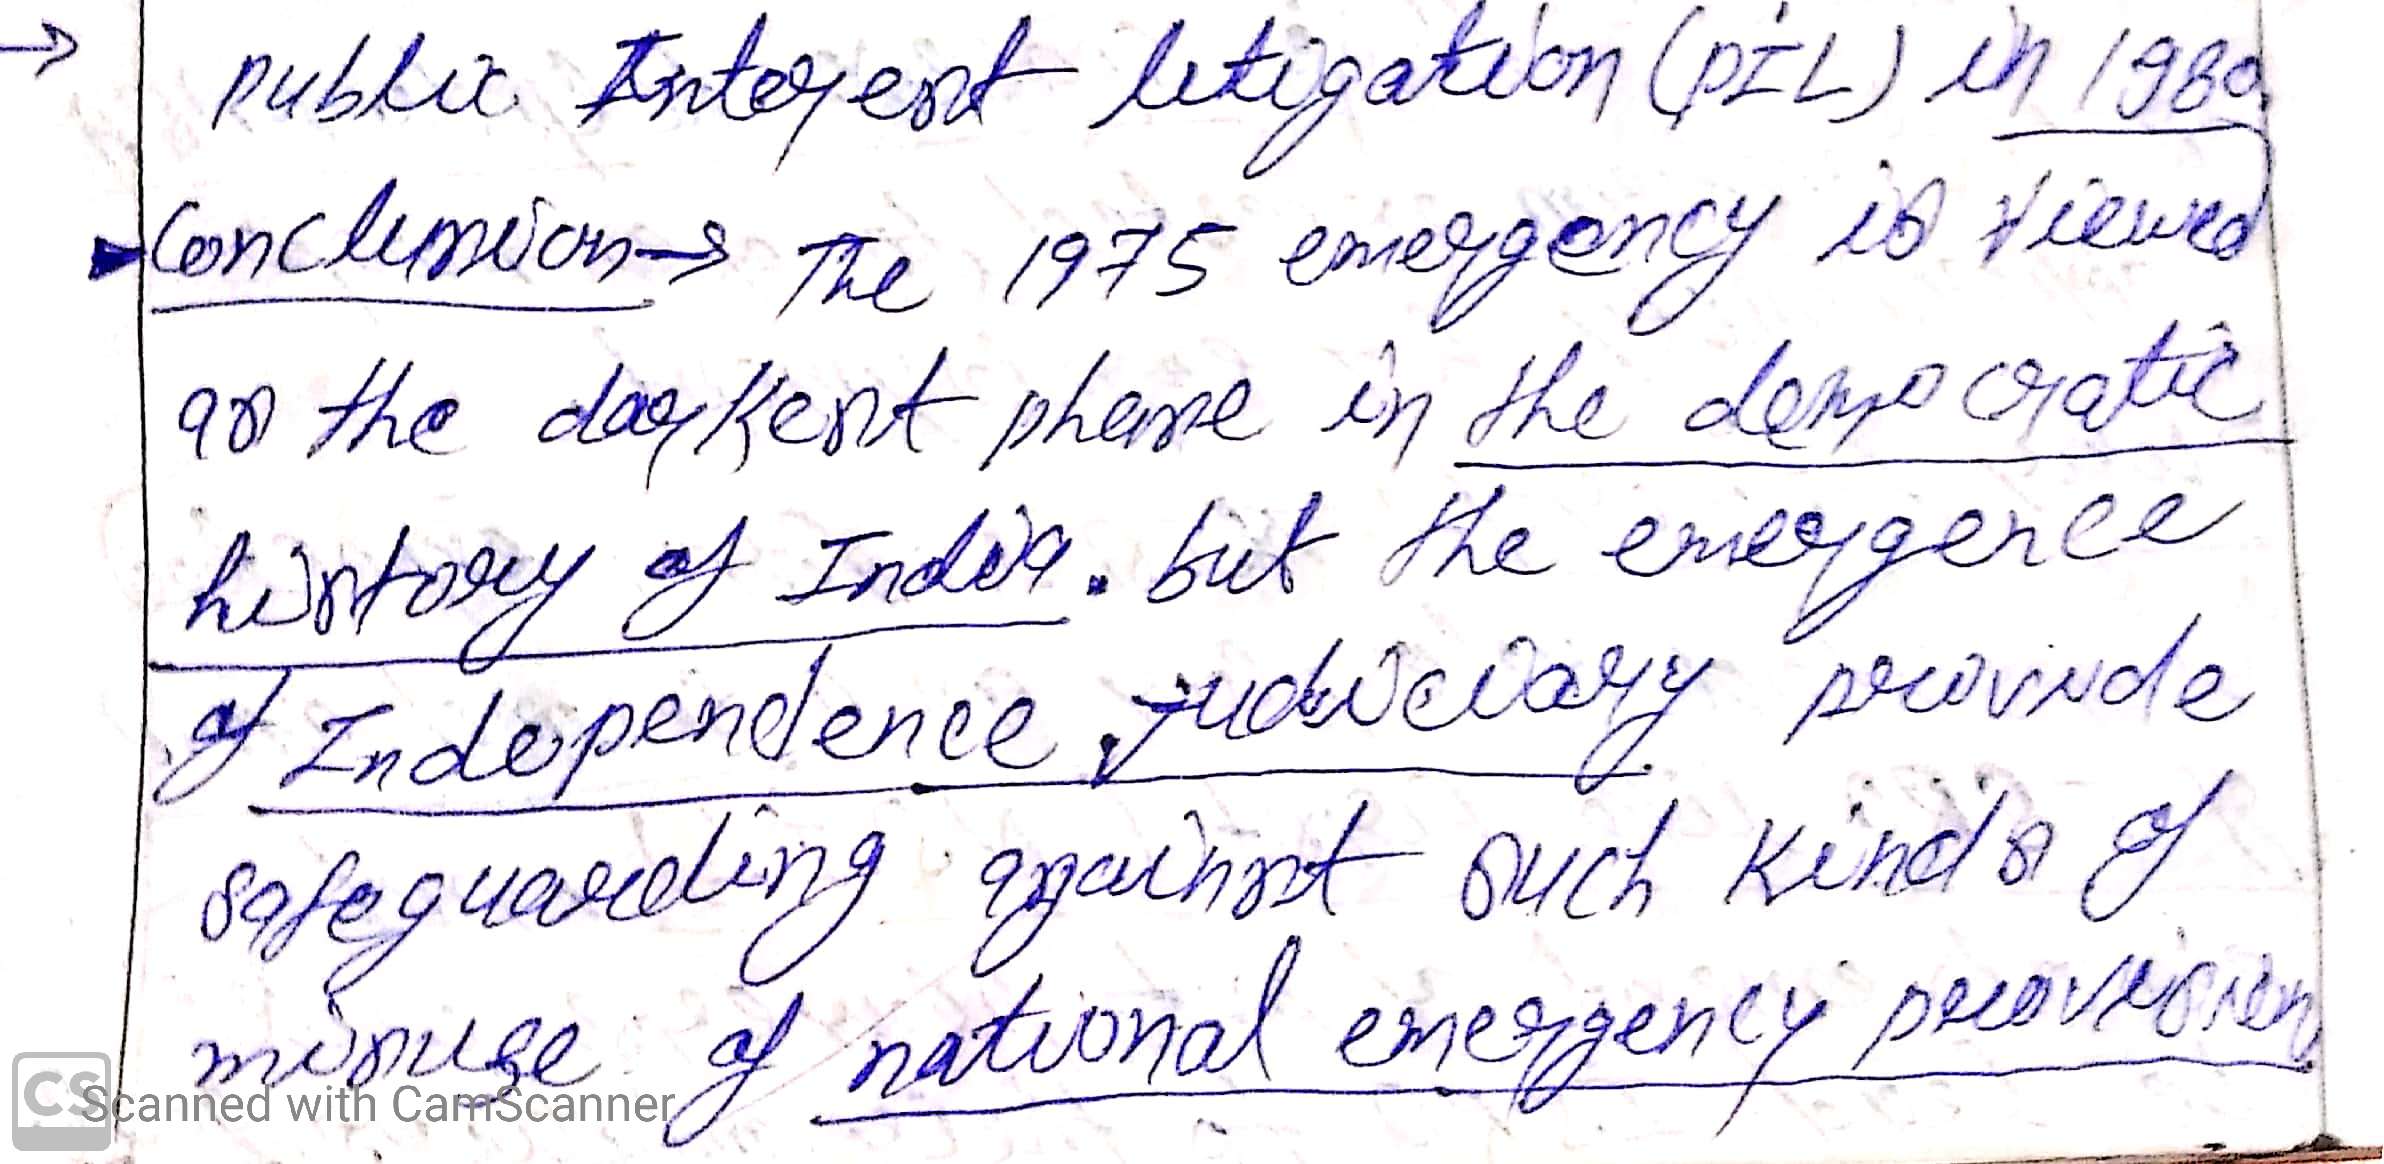 → Public Interest litigation (PIL) in 1980
Conclusion → The 1975 emergency is viewed
as the darkest phase in the democratic
history of India. but the emergence
of Independence judiciary provide
safeguarding against such kinds of
misuse of national emergency provision
CS Scanned with CamScanner